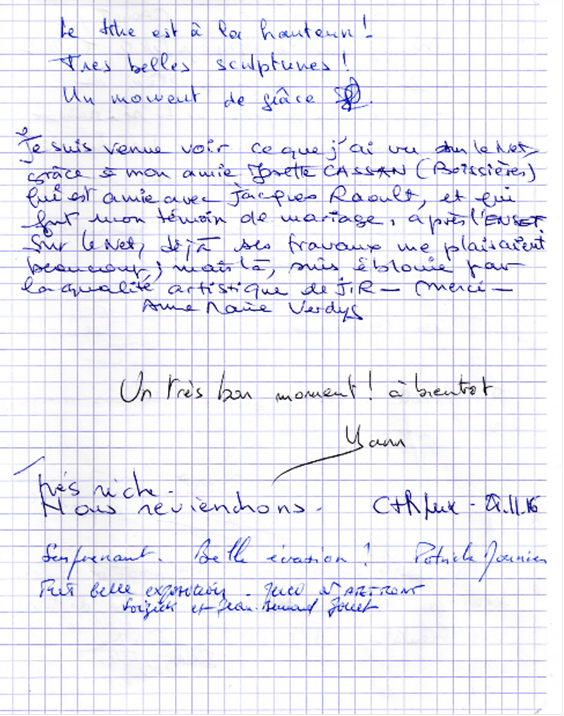 Le titre est à la hauteur !
Très belles sculptures !
Un moment de grâce
Je suis venue voir ce que j'ai vu sur le Net,
grâce à mon amie Josette CASSAN (Boissières)
qui est amie avec Jacques Raoult, et qui
fut mon témoin de mariage, après l'ENSET.
Sur le Net, déjà ses travaux me plaisaient
beaucoup ; mais là, suis éblouie par
la qualité artistique de J.R — Merci —
Anne Marie Verdys
Un très bon moment ! à bientot
Yann
très riche.
Nous reviendrons. 11.16
Surprenant. Belle évasion ! Patrick
Très belle exposition
et Jean-Bernard